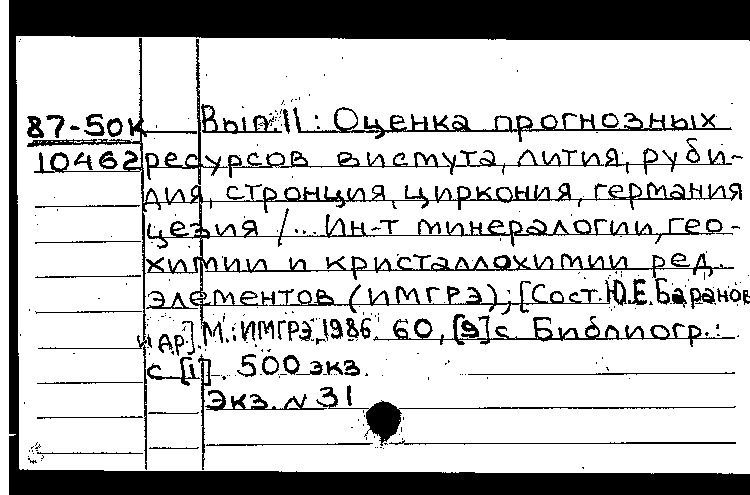 87-50К Вып.11: Оценка прогнозных
10462 ресурсов висмута, лития, руби-
дия, стронция, циркония, германия
цезия /... Ин-т минералогии, гео-
химии и кристаллохимии ред.
элементов (ИМГРЭ); [Сост. Ю.Е.Баранов
и др]. М.: ИМГРЭ, 1986. 60, [9] с. Библиогр.:
с. [1]. 500 экз.
Экз. N 31